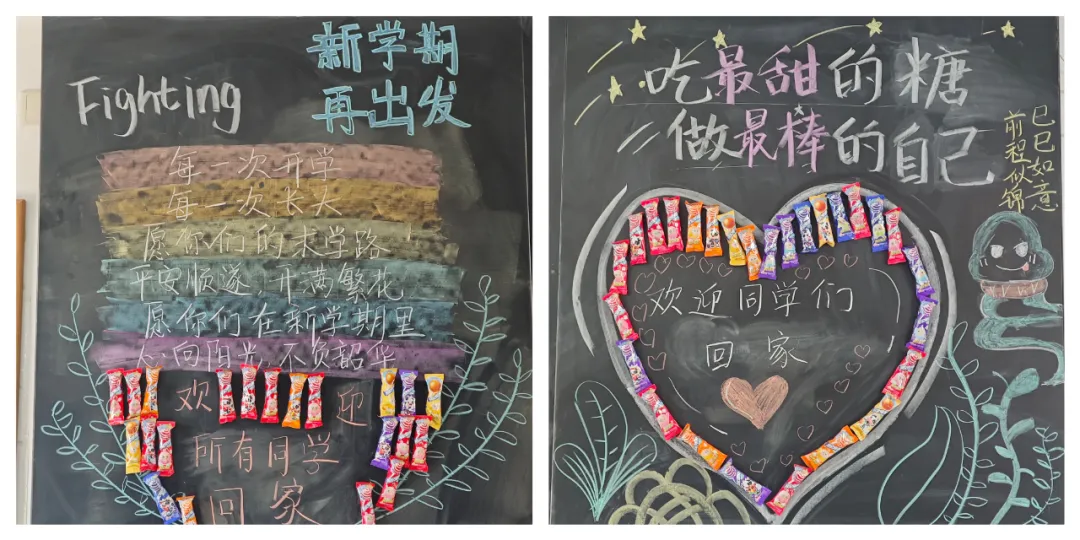 新学期
再出发
Fighting
每一次开学
每一次长大
愿你们的求学路
平安顺遂,开满繁花
愿你们在新学期里
心向阳光,不负韶华
欢迎
所有同学
回家
吃最甜的糖
做最棒的自己
巳巳如意
前程似锦
欢迎同学们
回家